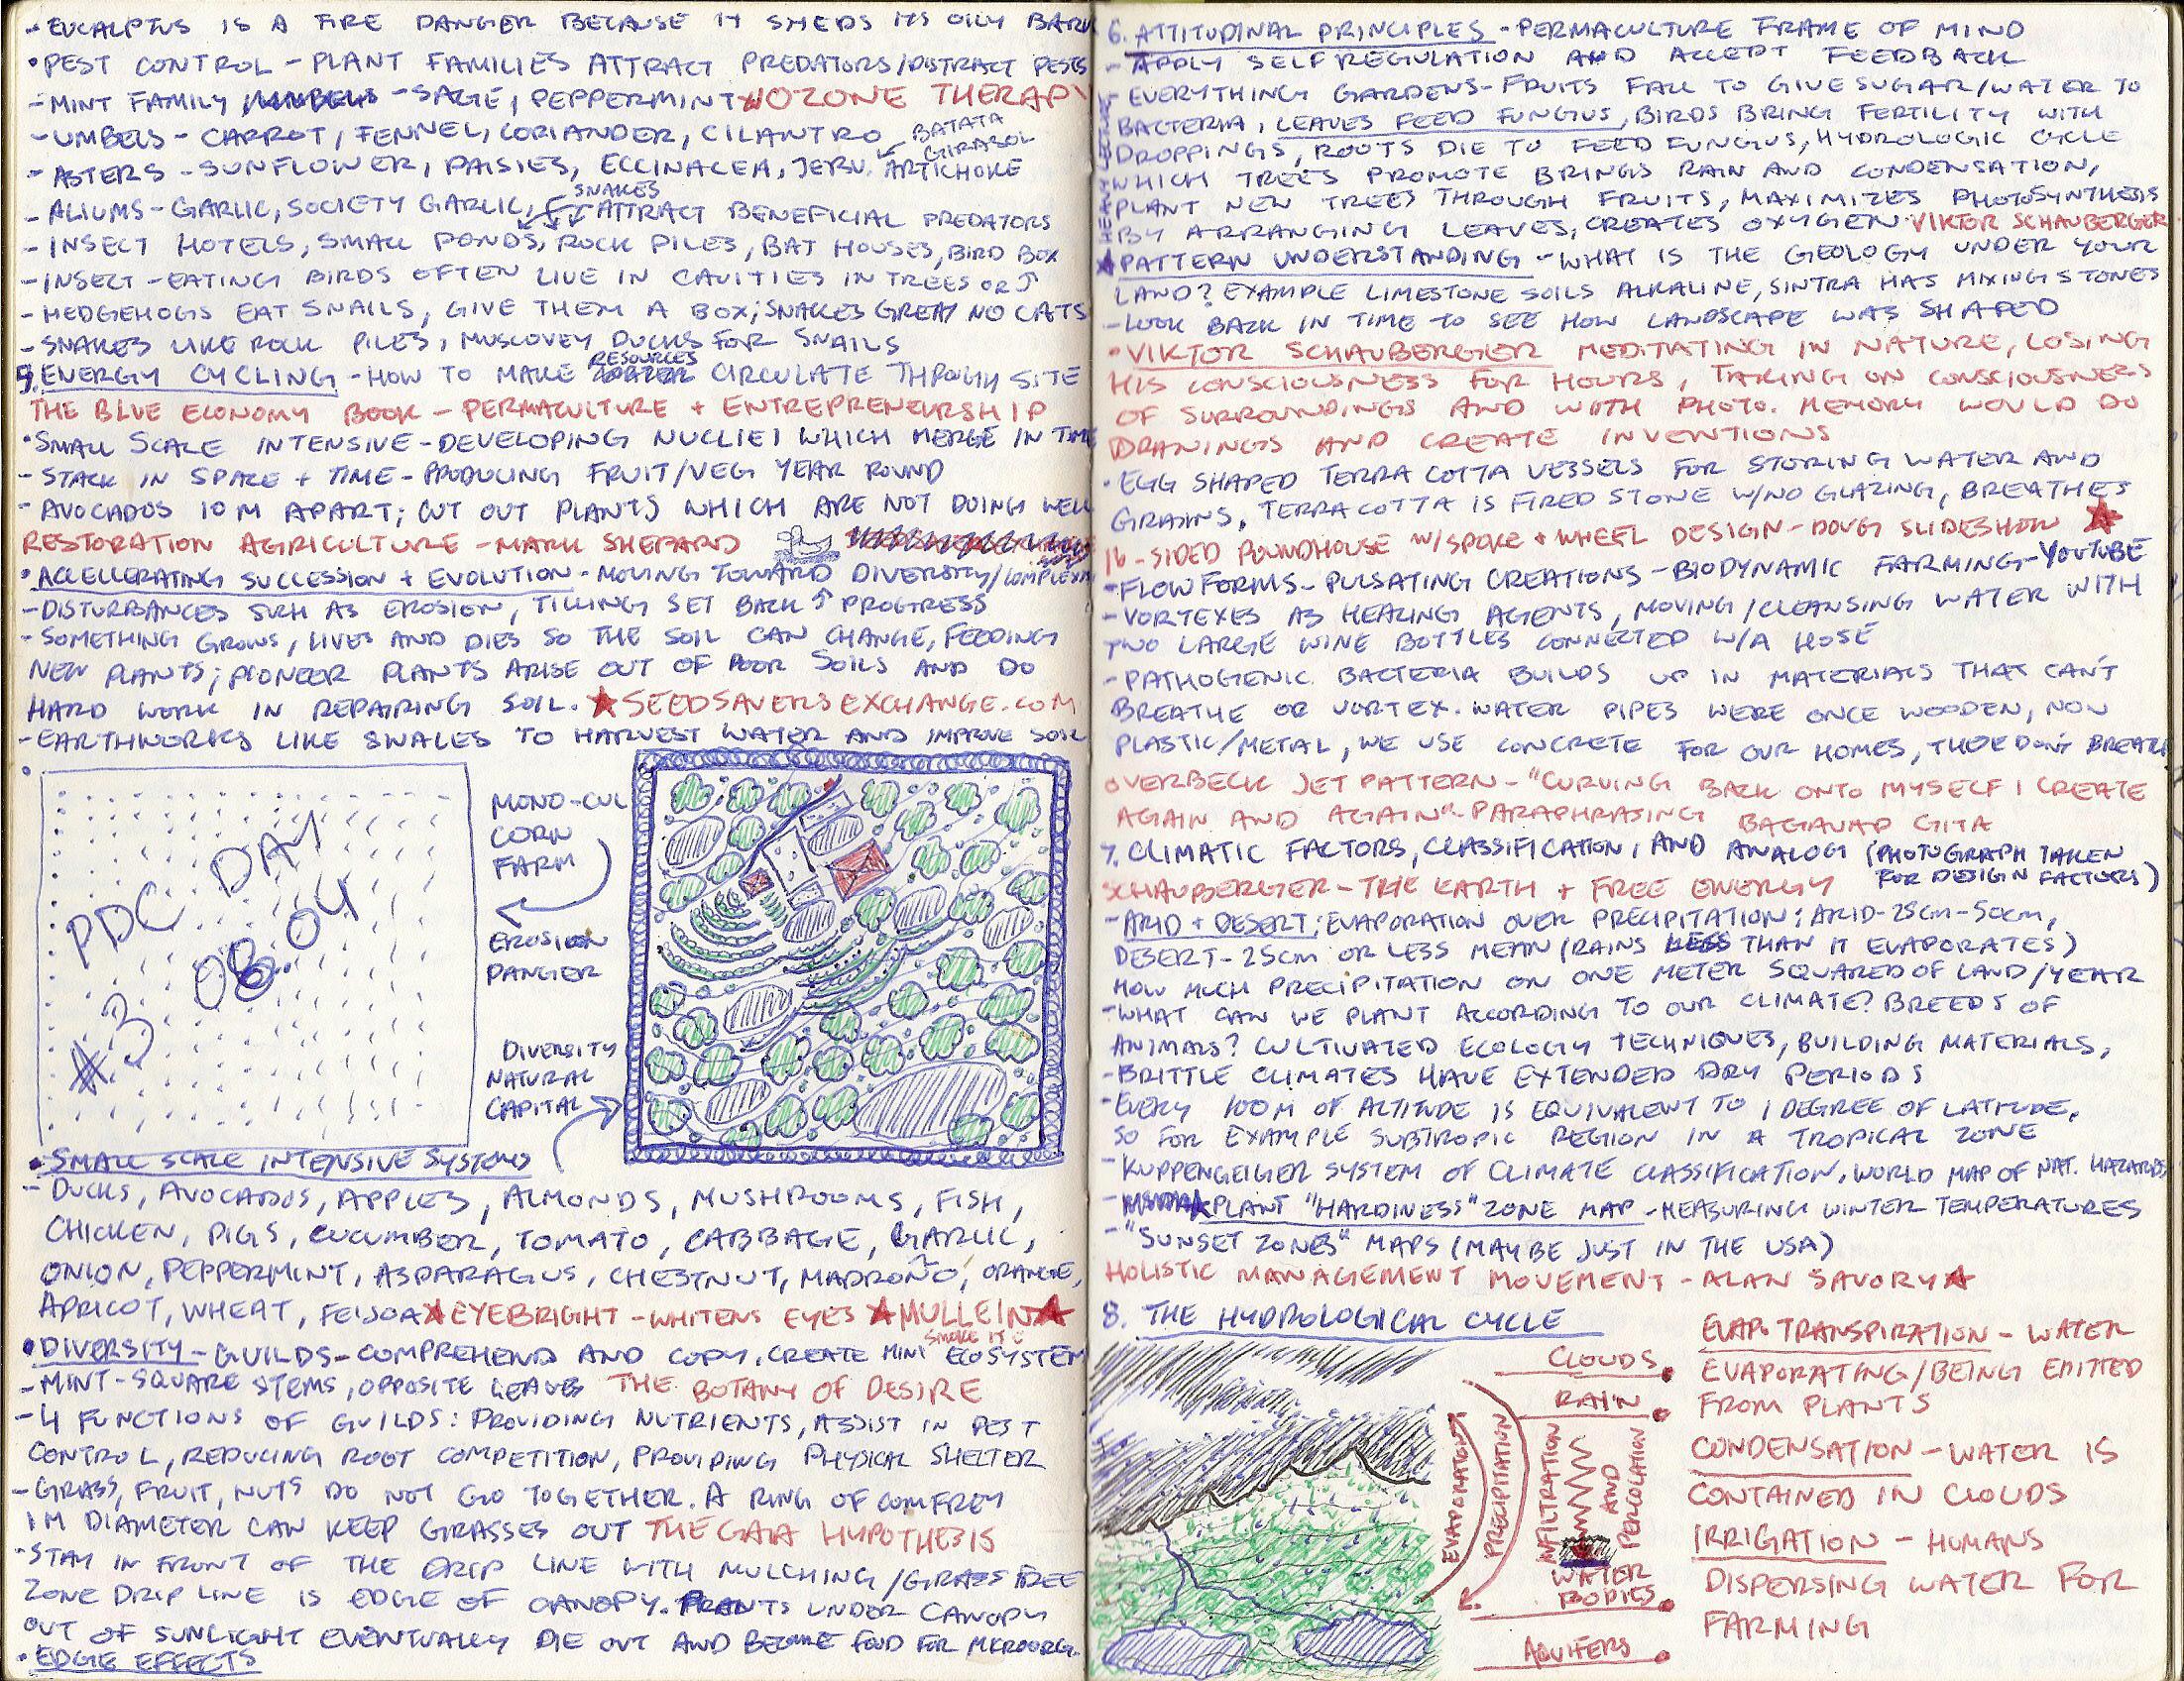 -EUCALPTUS IS A FIRE DANGER BECAUSE IT SHEDS ITS OILY BARK
•PEST CONTROL - PLANT FAMILIES ATTRACT PREDATORS/DISTRACT PESTS
-MINT FAMILY - SAGE, PEPPERMINT OZONE THERAPY
-UMBELS - CARROT, FENNEL, CORIANDER, CILANTRO
BATATA GIRASOL
-ASTERS - SUNFLOWER, DAISIES, ECCINACEA, JERU. ARTICHOKE
SNAKES
-ALIUMS - GARLIC, SOCIETY GARLIC, ATTRACT BENEFICIAL PREDATORS
-INSECT HOTELS, SMALL PONDS, ROCK PILES, BAT HOUSES, BIRD BOX
-INSECT-EATING BIRDS OFTEN LIVE IN CAVITIES IN TREES OR
-HEDGEHOGS EAT SNAILS, GIVE THEM A BOX; SNAKES GREAT NO CATS
-SNAKES LIKE ROCK PILES, MUSCOVEY DUCKS FOR SNAILS
RESOURCES
5. ENERGY CYCLING - HOW TO MAKE CIRCULATE THROUGH SITE
THE BLUE ECONOMY BOOK - PERMACULTURE + ENTREPRENEURSHIP
•SMALL SCALE INTENSIVE - DEVELOPING NUCLIEI WHICH MERGE IN TIME
-STACK IN SPACE + TIME - PRODUCING FRUIT/VEG YEAR ROUND
-AVOCADOS 10M APART; CUT OUT PLANTS WHICH ARE NOT DOING WELL
RESTORATION AGRICULTURE - MARK SHEPARD
•ACCELLERATING SUCCESSION + EVOLUTION - MOVING TOWARD DIVERSITY/COMPLEXITY
-DISTURBANCES SUCH AS EROSION, TILLING SET BACK PROGRESS
-SOMETHING GROWS, LIVES AND DIES SO THE SOIL CAN CHANGE, FEEDING
NEW PLANTS; PIONEER PLANTS ARISE OUT OF POOR SOILS AND DO
HARD WORK IN REPAIRING SOIL. ★SEEDSAVERSEXCHANGE.COM
-EARTHWORKS LIKE SWALES TO HARVEST WATER AND IMPROVE SOIL
PDC DAY
#3 08.04
MONO-CUL
CORN
FARM
EROSION
DANGER
DIVERSITY
NATURAL
CAPITAL
•SMALL SCALE INTENSIVE SYSTEMS
-DUCKS, AVOCADOS, APPLES, ALMONDS, MUSHROOMS, FISH,
CHICKEN, PIGS, CUCUMBER, TOMATO, CABBAGE, GARLIC,
ONION, PEPPERMINT, ASPARAGUS, CHESTNUT, MADROÑO, ORANGE,
APRICOT, WHEAT, FEIJOA ★EYEBRIGHT - WHITENS EYES ★MULLEIN★
SMOKE IT
•DIVERSITY - GUILDS - COMPREHEND AND COPY. CREATE MINI ECOSYSTEM
-MINT - SQUARE STEMS, OPPOSITE LEAVES THE BOTANY OF DESIRE
-4 FUNCTIONS OF GUILDS: PROVIDING NUTRIENTS, ASSIST IN PEST
CONTROL, REDUCING ROOT COMPETITION, PROVIDING PHYSICAL SHELTER
-GRASS, FRUIT, NUTS DO NOT GO TOGETHER. A RING OF COMFREY
1M DIAMETER CAN KEEP GRASSES OUT THE GAIA HYPOTHESIS
-STAY IN FRONT OF THE DRIP LINE WITH MULCHING/GRASS FREE
ZONE DRIP LINE IS EDGE OF CANOPY. PLANTS UNDER CANOPY
OUT OF SUNLIGHT EVENTUALLY DIE OUT AND BECOME FOOD FOR MICROORG.
•EDGE EFFECTS
6. ATTITUDINAL PRINCIPLES - PERMACULTURE FRAME OF MIND
-APPLY SELF REGULATION AND ACCEPT FEEDBACK
-EVERYTHING GARDENS - FRUITS FALL TO GIVE SUGAR/WATER TO
BACTERIA, LEAVES FEED FUNGUS, BIRDS BRING FERTILITY WITH
DROPPINGS, ROOTS DIE TO FEED FUNGUS, HYDROLOGIC CYCLE
WHICH TREES PROMOTE BRINGS RAIN AND CONDENSATION,
PLANT NEW TREES THROUGH FRUITS, MAXIMIZES PHOTOSYNTHESIS
BY ARRANGING LEAVES, CREATES OXYGEN VIKTOR SCHAUBERGER
★PATTERN UNDERSTANDING - WHAT IS THE GEOLOGY UNDER YOUR
LAND? EXAMPLE LIMESTONE SOILS ALKALINE, SINTRA HAS MIXING STONES
-LOOK BACK IN TIME TO SEE HOW LANDSCAPE WAS SHAPED
•VIKTOR SCHAUBERGER MEDITATING IN NATURE, LOSING
HIS CONSCIOUSNESS FOR HOURS, TAKING ON CONSCIOUSNESS
OF SURROUNDINGS AND WITH PHOTO. MEMORY WOULD DO
DRAWINGS AND CREATE INVENTIONS
•EGG SHAPED TERRA COTTA VESSELS FOR STORING WATER AND
GRAINS, TERRA COTTA IS FIRED STONE W/NO GLAZING, BREATHES
16-SIDED ROUNDHOUSE W/SPOKE + WHEEL DESIGN - DOUG SLIDESHOW ★
-FLOWFORMS - PULSATING CREATIONS - BIODYNAMIC FARMING - YOUTUBE
-VORTEXES AS HEALING AGENTS, MOVING/CLEANSING WATER WITH
TWO LARGE WINE BOTTLES CONNECTED W/A HOSE
-PATHOGENIC BACTERIA BUILDS UP IN MATERIALS THAT CAN'T
BREATHE OR VORTEX. WATER PIPES WERE ONCE WOODEN, NOW
PLASTIC/METAL, WE USE CONCRETE FOR OUR HOMES, THESE DON'T BREATHE
OVERBECK JET PATTERN - "CURVING BACK ONTO MYSELF I CREATE
AGAIN AND AGAIN" - PARAPHRASING BAGAVAD GITA
7. CLIMATIC FACTORS, CLASSIFICATION, AND ANALOG (PHOTOGRAPH TAKEN
FOR DESIGN FACTORS)
SCHAUBERGER - THE EARTH + FREE ENERGY
-ARID + DESERT: EVAPORATION OVER PRECIPITATION: ARID - 25CM - 50CM,
DESERT - 25CM OR LESS MEAN (RAINS LESS THAN IT EVAPORATES)
HOW MUCH PRECIPITATION ON ONE METER SQUARED OF LAND/YEAR
-WHAT CAN WE PLANT ACCORDING TO OUR CLIMATE? BREEDS OF
ANIMALS? CULTIVATED ECOLOGY TECHNIQUES, BUILDING MATERIALS,
-BRITTLE CLIMATES HAVE EXTENDED DRY PERIODS
-EVERY 100M OF ALTITUDE IS EQUIVALENT TO 1 DEGREE OF LATITUDE,
SO FOR EXAMPLE SUBTROPIC REGION IN A TROPICAL ZONE
-KUPPENGEIGER SYSTEM OF CLIMATE CLASSIFICATION, WORLD MAP OF NAT. HAZARDS
★PLANT "HARDINESS" ZONE MAP - MEASURING WINTER TEMPERATURES
-"SUNSET ZONES" MAPS (MAYBE JUST IN THE USA)
HOLISTIC MANAGEMENT MOVEMENT - ALAN SAVORY★
8. THE HYDROLOGICAL CYCLE
CLOUDS
RAIN
EVAPORATION
PRECIPITATION
INFILTRATION
AND
PERCOLATION
WATER
BODIES
AQUIFERS
EVAPOTRANSPIRATION - WATER
EVAPORATING/BEING EMITTED
FROM PLANTS
CONDENSATION - WATER IS
CONTAINED IN CLOUDS
IRRIGATION - HUMANS
DISPERSING WATER FOR
FARMING